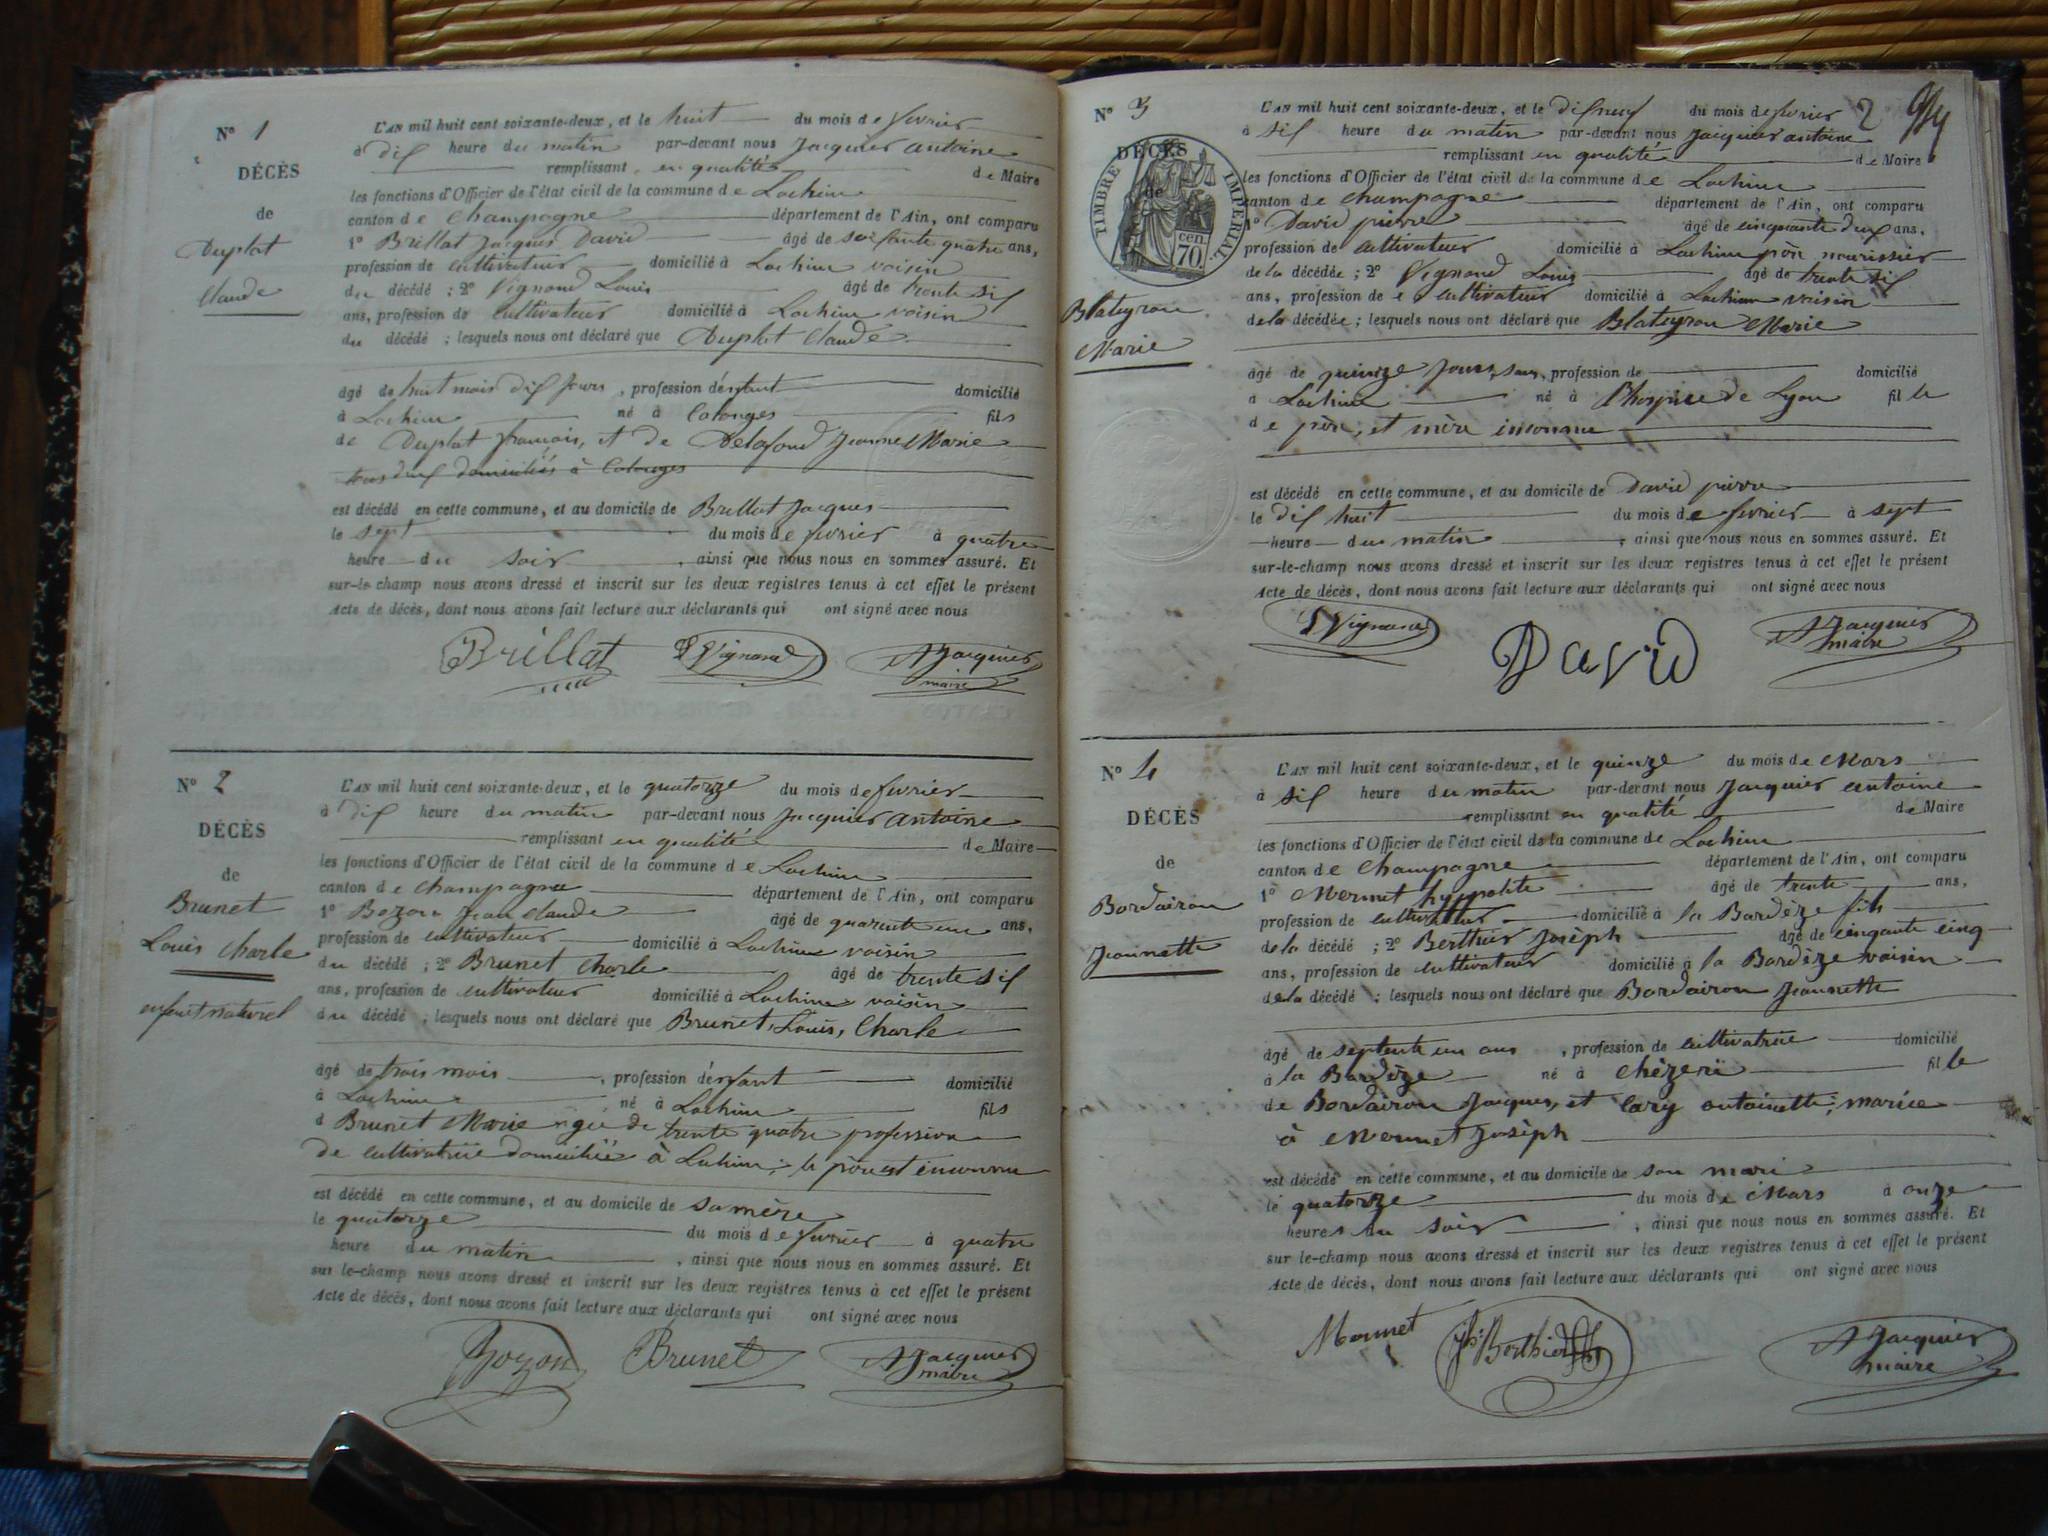 N° 1
DÉCÈS
de
Duplat
Claude
L'AN mil huit cent soixante-deux, et le huit du mois de fevrier
à dix heure du matin par-devant nous Jacquier antoine
remplissant en qualité de Maire
les fonctions d'Officier de l'état civil de la commune de Lochieu
canton de Champagne département de l'Ain, ont comparu
1° Brillat Jacques David âgé de soixante quatre ans,
profession de cultivateur domicilié à Lochieu voisin
du décédé ; 2° Vignond Louis âgé de trente six
ans, profession de cultivateur domicilié à Lochieu voisin
du décédé ; lesquels nous ont déclaré que Duplat Claude
âgé de huit mois dix jours , profession d'enfant domicilié
à Lochieu né à Colonges fils
de Duplat françois, et de Delafond Jeanne Marie
tous deux domiciliés à Colonges
est décédé en cette commune, et au domicile de Brillat Jacques
le sept du mois de fevrier à quatre
heure du soir , ainsi que nous nous en sommes assuré. Et
sur-le-champ nous avons dressé et inscrit sur les deux registres tenus à cet effet le présent
Acte de décès, dont nous avons fait lecture aux déclarants qui ont signé avec nous
Brillat L Vignond A Jacquier
maire
N° 2
DÉCÈS
de
Brunet
Louis Charle
enfant naturel
L'AN mil huit cent soixante-deux, et le quatorze du mois de fevrier
à dix heure du matin par-devant nous Jacquier antoine
remplissant en qualité de Maire
les fonctions d'Officier de l'état civil de la commune de Lochieu
canton de Champagne département de l'Ain, ont comparu
1° Bozon Jean Claude âgé de quarente un ans,
profession de cultivateur domicilié à Lochieu voisin
du décédé ; 2° Brunet Charle âgé de trente six
ans, profession de cultivateur domicilié à Lochieu voisin
du décédé ; lesquels nous ont déclaré que Brunet, Louis, Charle
âgé de trois mois , profession d'enfant domicilié
à Lochieu né à Lochieu fils
d Brunet Marie agée de trente quatre profession
de cultivatrice domiciliée à Lochieu ; le père est inconnu
est décédé en cette commune, et au domicile de sa mère
le quatorze du mois de fevrier à quatre
heure du matin , ainsi que nous nous en sommes assuré. Et
sur-le-champ nous avons dressé et inscrit sur les deux registres tenus à cet effet le présent
Acte de décès, dont nous avons fait lecture aux déclarants qui ont signé avec nous
Bozon Brunet A Jacquier
maire
2
N° 3
DÉCÈS
de
TIMBRE IMPÉRIAL
70 cen.
Blateyron
Marie
L'AN mil huit cent soixante-deux, et le dix neuf du mois de fevrier
à six heure du matin par-devant nous Jacquier antoine
remplissant en qualité de Maire
les fonctions d'Officier de l'état civil de la commune de Lochieu
canton de Champagne département de l'Ain, ont comparu
1° David pierre âgé de cinquante deux ans,
profession de cultivateur domicilié à Lochieu père nourissier
de la décédée ; 2° Vignond Louis âgé de trente six
ans, profession de cultivateur domicilié à Lochieu voisin
de la décédée ; lesquels nous ont déclaré que Blateyron Marie
âgé de quinze jours, sans, profession de domicilié
à Lochieu né à l'hospice de Lyon fille
de père, et mère inconnue
est décédé en cette commune, et au domicile de David pierre
le dix huit du mois de fevrier à sept
heure du matin , ainsi que nous nous en sommes assuré. Et
sur-le-champ nous avons dressé et inscrit sur les deux registres tenus à cet effet le présent
Acte de décès, dont nous avons fait lecture aux déclarants qui ont signé avec nous
L Vignond David A Jacquier
maire
N° 4
DÉCÈS
de
Bordairon
Jeannette
L'AN mil huit cent soixante-deux, et le quinze du mois de Mars
à six heure du matin par-devant nous Jacquier antoine
remplissant en qualité de Maire
les fonctions d'Officier de l'état civil de la commune de Lochieu
canton de Champagne département de l'Ain, ont comparu
1° Mermet hyppolite âgé de trente ans,
profession de cultivateur domicilié à la Bardèze fils
de la décédé ; 2° Berthier Josèph âgé de cinqante cinq
ans, profession de cultivateur domicilié à la Bardèze voisin
de la décédé ; lesquels nous ont déclaré que Bordairon Jeannette
âgé de septente un ans , profession de cultivatrice domicilié
à la Bardèze né à Chézeri fille
de Bordairon Jacques, et Cary antoinette ; mariée
à Mermet Josèph
est décédé en cette commune, et au domicile de son mari
le quatorze du mois de Mars à onze
heures du soir , ainsi que nous nous en sommes assuré. Et
sur-le-champ nous avons dressé et inscrit sur les deux registres tenus à cet effet le présent
Acte de décès, dont nous avons fait lecture aux déclarants qui ont signé avec nous
Mermet Jh Berthier A Jacquier
maire